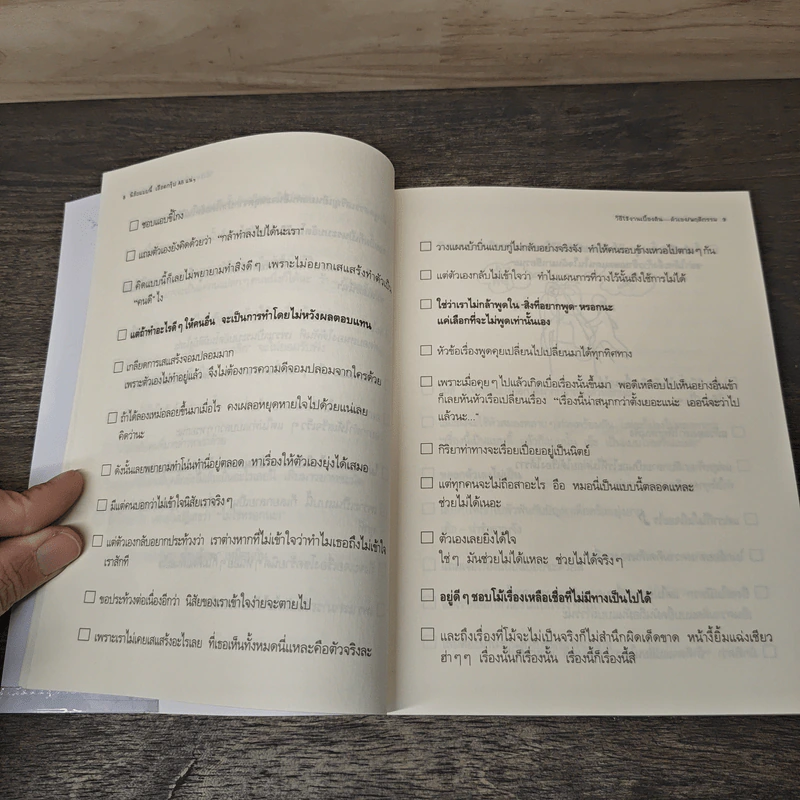 8 นิสัยแบบนี้ เลือดกรุ๊ป AB แน่ๆ
ชอบแอบขี้โกง
แถมตัวเองยังคิดด้วยว่า "กล้าทำลงไปได้นะเรา"
คิดแบบนี้ก็เลยไม่พยายามทำสิ่งดีๆ เพราะไม่อยากเสแสร้งทำตัวเป็น
"คนดี" ไง
แต่ถ้าทำอะไรดีๆ ให้คนอื่น จะเป็นการทำโดยไม่หวังผลตอบแทน
เกลียดการเสแสร้งจอมปลอมมาก
เพราะตัวเองไม่ทำอยู่แล้ว จึงไม่ต้องการความดีจอมปลอมจากใครด้วย
ถ้าได้ลองเหม่อลอยขึ้นมาเมื่อไร คงเผลอหยุดหายใจไปด้วยแน่เลย
คิดว่านะ
ดังนั้นเลยพยายามทำโน่นทำนี่อยู่ตลอด หาเรื่องให้ตัวเองยุ่งได้เสมอ
มีแต่คนบอกว่าไม่เข้าใจนิสัยเราจริงๆ
แต่ตัวเองกลับอยากประท้วงว่า เราต่างหากที่ไม่เข้าใจว่าทำไมเธอถึงไม่เข้าใจ
เราสักที
ขอประท้วงต่อเนื่องอีกว่า นิสัยของเราเข้าใจง่ายจะตายไป
เพราะเราไม่เคยเสแสร้งอะไรเลย ที่เธอเห็นทั้งหมดนี่แหละคือตัวจริงละ
วิธีใช้งานเบื้องต้น...
9
วางแผนบ้าบิ่นแบบกู่ไม่กลับอย่างจริงจัง ทำให้คนรอบข้างเหวอไปตามๆ กัน
แต่ตัวเองกลับไม่เข้าใจว่า ทำไมแผนการที่วางไว้นั้นถึงใช้การไม่ได้
ใช่ว่าเราไม่กล้าพูดใน สิ่งที่อยากพูด หรอกนะ
แค่เลือกที่จะไม่พูดเท่านั้นเอง
หัวข้อเรื่องพูดคุยเปลี่ยนไปเปลี่ยนมาได้ทุกทิศทาง
เพราะเมื่อคุยๆ ไปแล้วเกิดเบื่อเรื่องนั้นขึ้นมา พอดีเหลือบไปเห็นอย่างอื่นเข้า
ก็เลยหันหัวเรือเปลี่ยนเรื่อง "เรื่องนี้น่าสนุกกว่าตั้งเยอะแน่ะ เออนี่จะว่าไป
แล้วนะ..."
กิริยาท่าทางจะเรื่อยเปื่อยอยู่เป็นนิตย์
แต่ทุกคนจะไม่ถือสาอะไร อือ หมอนี่เป็นแบบนี้ตลอดแหละ
ช่วยไม่ได้เนอะ
ตัวเองเลยยิ่งได้ใจ
ใช่ๆ มันช่วยไม่ได้แหละ ช่วยไม่ได้จริงๆ
อยู่ดีๆ ชอบโม้เรื่องเหลือเชื่อที่ไม่มีทางเป็นไปได้
และถึงเรื่องที่โม้จะไม่เป็นจริงก็ไม่สำนึกผิดเด็ดขาด หน้างี้ยิ้มแฉ่งเชียว
ฮ่าๆๆ เรื่องนั้นก็เรื่องนั้น เรื่องนี้ก็เรื่องนี้สิ